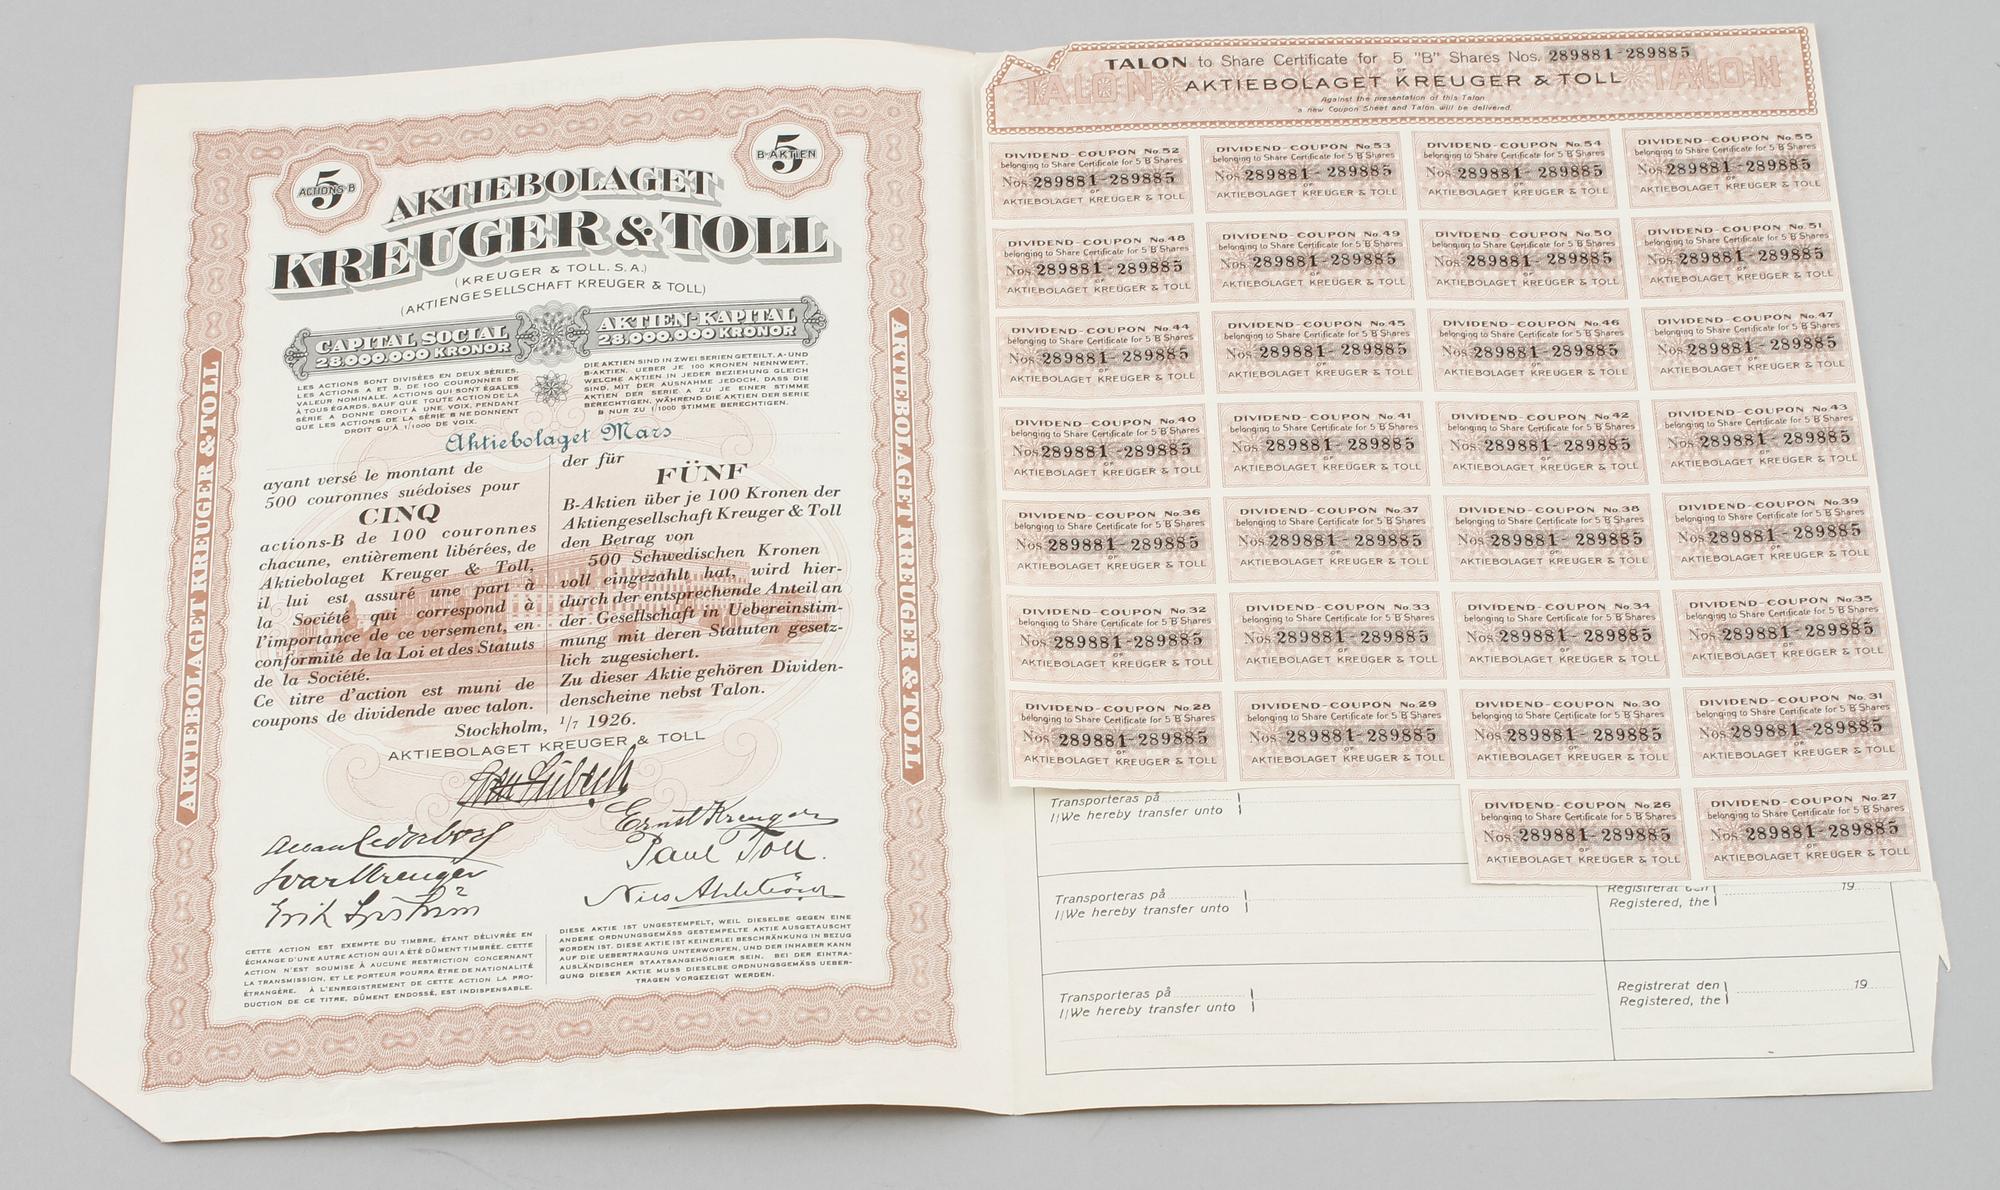 5
ACTIONS B
5
B-AKTIEN
AKTIEBOLAGET
KREUGER & TOLL
(KREUGER & TOLL. S.A.)
(AKTIENGESELLSCHAFT KREUGER & TOLL)
CAPITAL SOCIAL
28.000.000 KRONOR
AKTIEN-KAPITAL
28.000.000 KRONOR
LES ACTIONS SONT DIVISÉES EN DEUX SÉRIES,
LES ACTIONS A ET B, DE 100 COURONNES DE
VALEUR NOMINALE, ACTIONS QUI SONT ÉGALES
À TOUS ÉGARDS, SAUF QUE TOUTE ACTION DE LA
SÉRIE A DONNE DROIT À UNE VOIX, PENDANT
QUE LES ACTIONS DE LA SÉRIE B NE DONNENT
DROIT QU'À 1/1000 DE VOIX.
DIE AKTIEN SIND IN ZWEI SERIEN GETEILT, A- UND
B-AKTIEN, UEBER JE 100 KRONEN NENNWERT,
WELCHE AKTIEN IN JEDER BEZIEHUNG GLEICH
SIND, MIT DER AUSNAHME JEDOCH, DASS DIE
AKTIEN DER SERIE A ZU JE EINER STIMME
BERECHTIGEN, WÄHREND DIE AKTIEN DER SERIE
B NUR ZU 1/1000 STIMME BERECHTIGEN.
Aktiebolaget Mars
ayant versé le montant de
500 couronnes suédoises pour
CINQ
actions-B de 100 couronnes
chacune, entièrement libérées, de
Aktiebolaget Kreuger & Toll,
il lui est assuré une part à
la Société qui correspond à
l'importance de ce versement, en
conformité de la Loi et des Statuts
de la Société.
Ce titre d'action est muni de
coupons de dividende avec talon.
der für
FÜNF
B-Aktien über je 100 Kronen der
Aktiengesellschaft Kreuger & Toll
den Betrag von
500 Schwedischen Kronen
voll eingezahlt hat, wird hier-
durch der entsprechende Anteil an
der Gesellschaft in Uebereinstim-
mung mit deren Statuten gesetz-
lich zugesichert.
Zu dieser Aktie gehören Dividen-
denscheine nebst Talon.
Stockholm, 1/7 1926.
AKTIEBOLAGET KREUGER & TOLL
Ernst Kreuger
Paul Toll.
Ivar Kreuger
CETTE ACTION EST EXEMPTE DU TIMBRE, ÉTANT DÉLIVRÉE EN
ÉCHANGE D'UNE AUTRE ACTION QUI A ÉTÉ DÛMENT TIMBRÉE. CETTE
ACTION N'EST SOUMISE À AUCUNE RESTRICTION CONCERNANT
LA TRANSMISSION, ET LE PORTEUR POURRA ÊTRE DE NATIONALITÉ
ÉTRANGÈRE. À L'ENREGISTREMENT DE CETTE ACTION LA PRO-
DUCTION DE CE TITRE, DÛMENT ENDOSSÉ, EST INDISPENSABLE.
DIESE AKTIE IST UNGESTEMPELT, WEIL DIESELBE GEGEN EINE
ANDERE ORDNUNGSGEMÄSS GESTEMPELTE AKTIE AUSGETAUSCHT
WORDEN IST. DIESE AKTIE IST KEINERLEI BESCHRÄNKUNG IN BEZUG
AUF DIE UEBERTRAGUNG UNTERWORFEN, UND DER INHABER KANN
AUSLÄNDISCHER STAATSANGEHÖRIGER SEIN. BEI DER EINTRA-
GUNG DIESER AKTIE MUSS DIESELBE ORDNUNGSGEMÄSS UEBER-
TRAGEN VORGEZEIGT WERDEN.
AKTIEBOLAGET KREUGER & TOLL
AKTIEBOLAGET KREUGER & TOLL
TALON to Share Certificate for 5 "B" Shares Nos. 289881-289885
OF
TALON AKTIEBOLAGET KREUGER & TOLL TALON
Against the presentation of this Talon
a new Coupon Sheet and Talon will be delivered.
DIVIDEND-COUPON No. 52
belonging to Share Certificate for 5 B Shares
Nos. 289881-289885
OF
AKTIEBOLAGET KREUGER & TOLL
DIVIDEND-COUPON No. 53
belonging to Share Certificate for 5 B Shares
Nos. 289881-289885
OF
AKTIEBOLAGET KREUGER & TOLL
DIVIDEND-COUPON No. 54
belonging to Share Certificate for 5 B Shares
Nos. 289881-289885
OF
AKTIEBOLAGET KREUGER & TOLL
DIVIDEND-COUPON No. 55
belonging to Share Certificate for 5 B Shares
Nos. 289881-289885
OF
AKTIEBOLAGET KREUGER & TOLL
DIVIDEND-COUPON No. 48
belonging to Share Certificate for 5 B Shares
Nos. 289881-289885
OF
AKTIEBOLAGET KREUGER & TOLL
DIVIDEND-COUPON No. 49
belonging to Share Certificate for 5 B Shares
Nos. 289881-289885
OF
AKTIEBOLAGET KREUGER & TOLL
DIVIDEND-COUPON No. 50
belonging to Share Certificate for 5 B Shares
Nos. 289881-289885
OF
AKTIEBOLAGET KREUGER & TOLL
DIVIDEND-COUPON No. 51
belonging to Share Certificate for 5 B Shares
Nos. 289881-289885
OF
AKTIEBOLAGET KREUGER & TOLL
DIVIDEND-COUPON No. 44
belonging to Share Certificate for 5 B Shares
Nos. 289881-289885
OF
AKTIEBOLAGET KREUGER & TOLL
DIVIDEND-COUPON No. 45
belonging to Share Certificate for 5 B Shares
Nos. 289881-289885
OF
AKTIEBOLAGET KREUGER & TOLL
DIVIDEND-COUPON No. 46
belonging to Share Certificate for 5 B Shares
Nos. 289881-289885
OF
AKTIEBOLAGET KREUGER & TOLL
DIVIDEND-COUPON No. 47
belonging to Share Certificate for 5 B Shares
Nos. 289881-289885
OF
AKTIEBOLAGET KREUGER & TOLL
DIVIDEND-COUPON No. 40
belonging to Share Certificate for 5 B Shares
Nos. 289881-289885
OF
AKTIEBOLAGET KREUGER & TOLL
DIVIDEND-COUPON No. 41
belonging to Share Certificate for 5 B Shares
Nos. 289881-289885
OF
AKTIEBOLAGET KREUGER & TOLL
DIVIDEND-COUPON No. 42
belonging to Share Certificate for 5 B Shares
Nos. 289881-289885
OF
AKTIEBOLAGET KREUGER & TOLL
DIVIDEND-COUPON No. 43
belonging to Share Certificate for 5 B Shares
Nos. 289881-289885
OF
AKTIEBOLAGET KREUGER & TOLL
DIVIDEND-COUPON No. 36
belonging to Share Certificate for 5 B Shares
Nos. 289881-289885
OF
AKTIEBOLAGET KREUGER & TOLL
DIVIDEND-COUPON No. 37
belonging to Share Certificate for 5 B Shares
Nos. 289881-289885
OF
AKTIEBOLAGET KREUGER & TOLL
DIVIDEND-COUPON No. 38
belonging to Share Certificate for 5 B Shares
Nos. 289881-289885
OF
AKTIEBOLAGET KREUGER & TOLL
DIVIDEND-COUPON No. 39
belonging to Share Certificate for 5 B Shares
Nos. 289881-289885
OF
AKTIEBOLAGET KREUGER & TOLL
DIVIDEND-COUPON No. 32
belonging to Share Certificate for 5 B Shares
Nos. 289881-289885
OF
AKTIEBOLAGET KREUGER & TOLL
DIVIDEND-COUPON No. 33
belonging to Share Certificate for 5 B Shares
Nos. 289881-289885
OF
AKTIEBOLAGET KREUGER & TOLL
DIVIDEND-COUPON No. 34
belonging to Share Certificate for 5 B Shares
Nos. 289881-289885
OF
AKTIEBOLAGET KREUGER & TOLL
DIVIDEND-COUPON No. 35
belonging to Share Certificate for 5 B Shares
Nos. 289881-289885
OF
AKTIEBOLAGET KREUGER & TOLL
DIVIDEND-COUPON No. 28
belonging to Share Certificate for 5 B Shares
Nos. 289881-289885
OF
AKTIEBOLAGET KREUGER & TOLL
DIVIDEND-COUPON No. 29
belonging to Share Certificate for 5 B Shares
Nos. 289881-289885
OF
AKTIEBOLAGET KREUGER & TOLL
DIVIDEND-COUPON No. 30
belonging to Share Certificate for 5 B Shares
Nos. 289881-289885
OF
AKTIEBOLAGET KREUGER & TOLL
DIVIDEND-COUPON No. 31
belonging to Share Certificate for 5 B Shares
Nos. 289881-289885
OF
AKTIEBOLAGET KREUGER & TOLL
DIVIDEND-COUPON No. 26
belonging to Share Certificate for 5 B Shares
Nos. 289881-289885
OF
AKTIEBOLAGET KREUGER & TOLL
DIVIDEND-COUPON No. 27
belonging to Share Certificate for 5 B Shares
Nos. 289881-289885
OF
AKTIEBOLAGET KREUGER & TOLL
Transporteras på
I/We hereby transfer unto
Transporteras på
I/We hereby transfer unto
Registrerat den 19
Registered, the
Transporteras på
I/We hereby transfer unto
Registrerat den 19
Registered, the